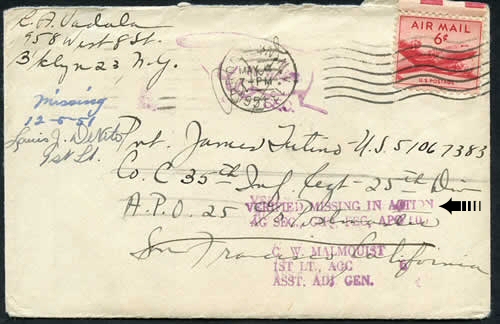 R. A. Vadala
958 West 8 St.
B'klyn 23, N.Y.
AIR MAIL
6¢
U.S. POSTAGE
MAY
PM
1951
Missing
12-6-51
Louis J. DeVito
1st Lt.
Pvt. James Tutino - U.S 51067383
Co. C 35th Inf. Regt - 25th Div
A.P.O. 25 % Postmaster
VERIFIED MISSING IN ACTION
AG SEC., CAS.
San Francisco, California
C. W. MALMQUIST
1ST LT., AGC
ASST. ADJ. GEN.
6